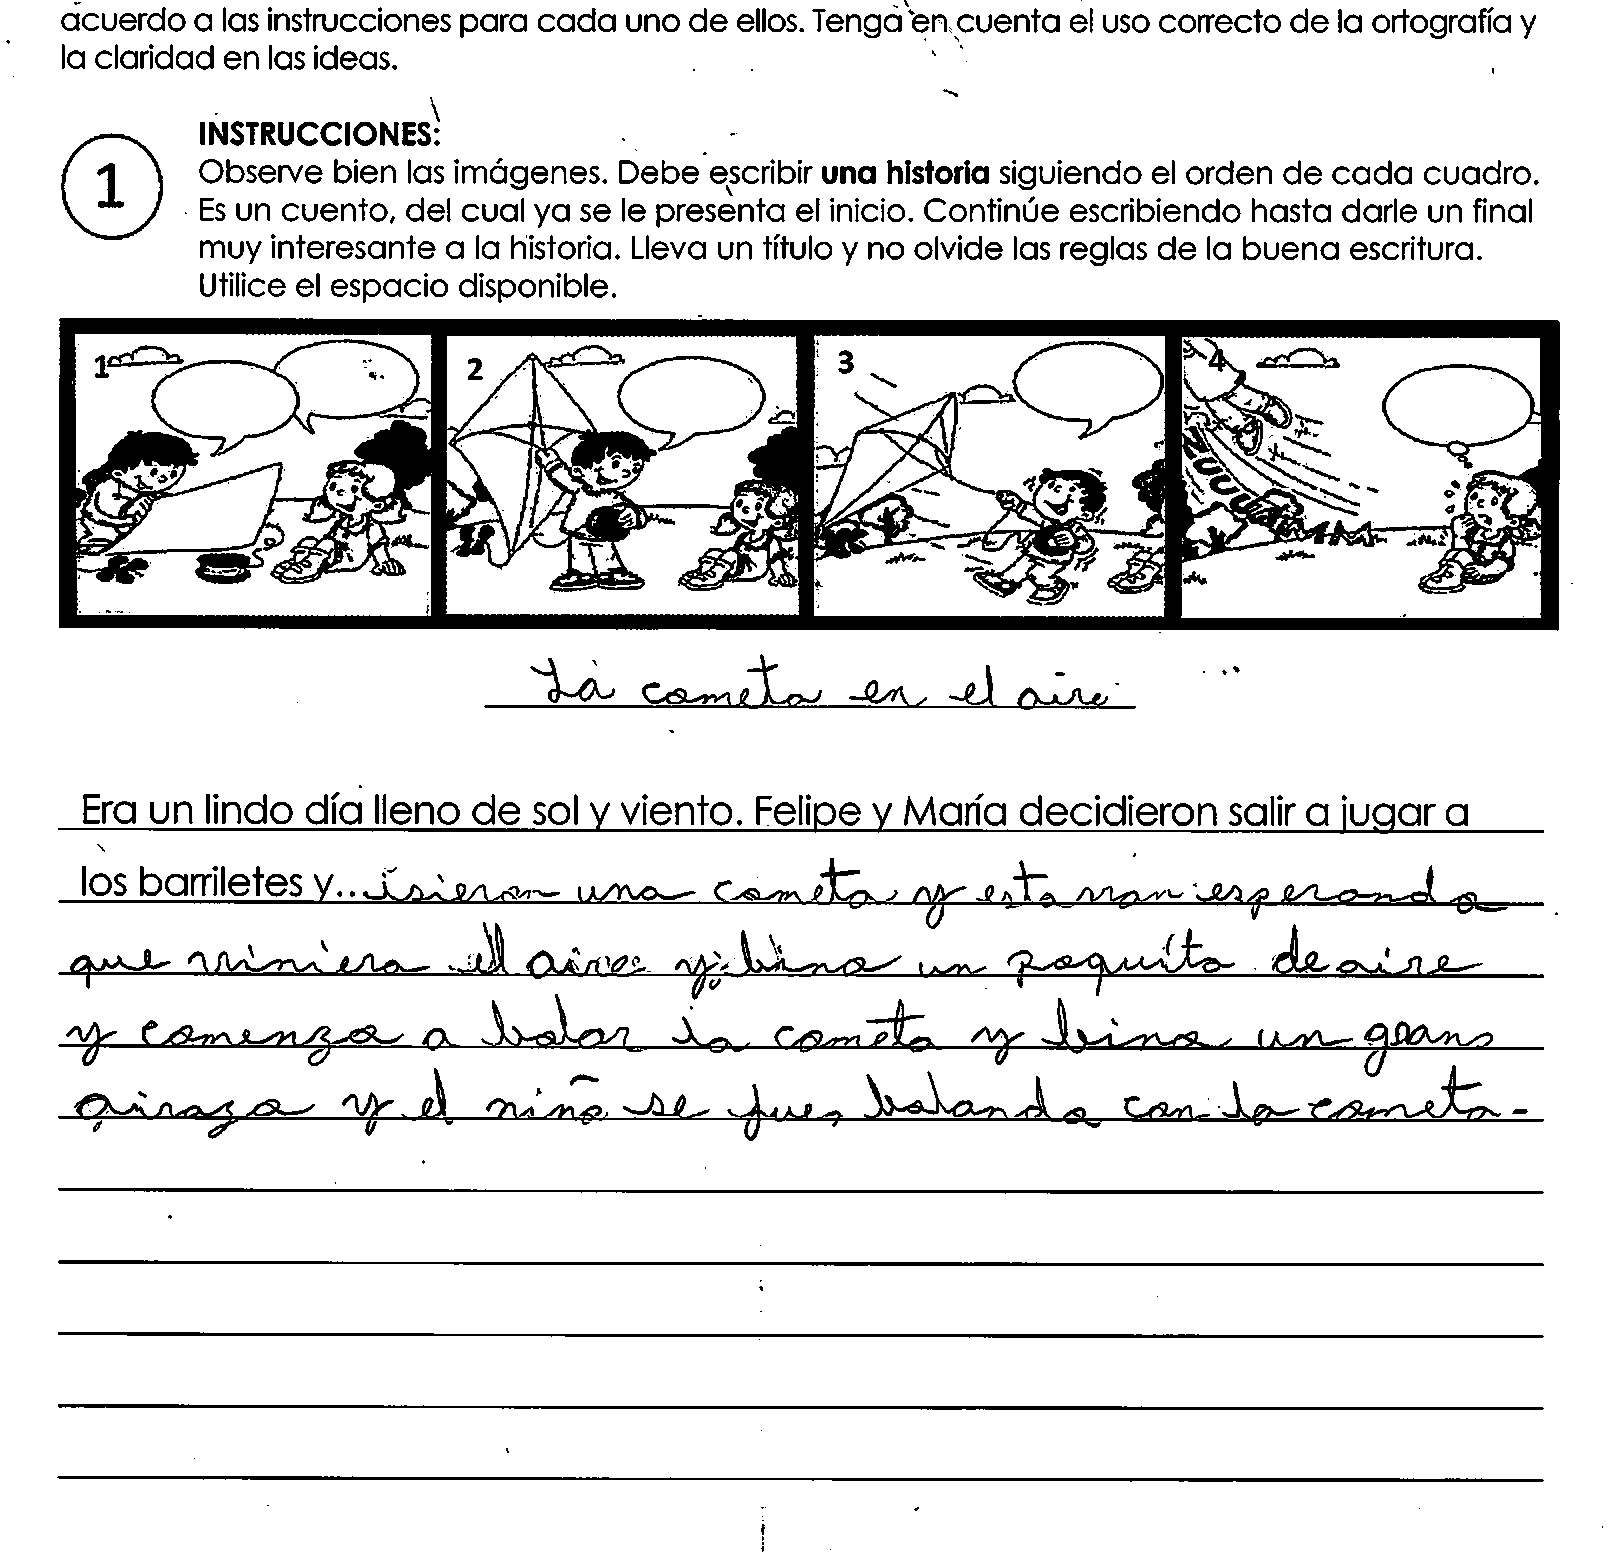 acuerdo a las instrucciones para cada uno de ellos. Tenga en cuenta el uso correcto de la ortografía y
la claridad en las ideas.
INSTRUCCIONES:
1
Observe bien las imágenes. Debe escribir una historia siguiendo el orden de cada cuadro.
Es un cuento, del cual ya se le presenta el inicio. Continúe escribiendo hasta darle un final
muy interesante a la historia. Lleva un título y no olvide las reglas de la buena escritura.
Utilice el espacio disponible.
1 2 3 4
La cometa en el aire
Era un lindo día lleno de sol y viento. Felipe y María decidieron salir a jugar a
los barriletes y... isieron una cometa y estavan esperando
que viniera el aire y bino un poquito de aire
y comenzo a bolar la cometa y bino un gran
airazo y el niño se fue bolando con la cometa-